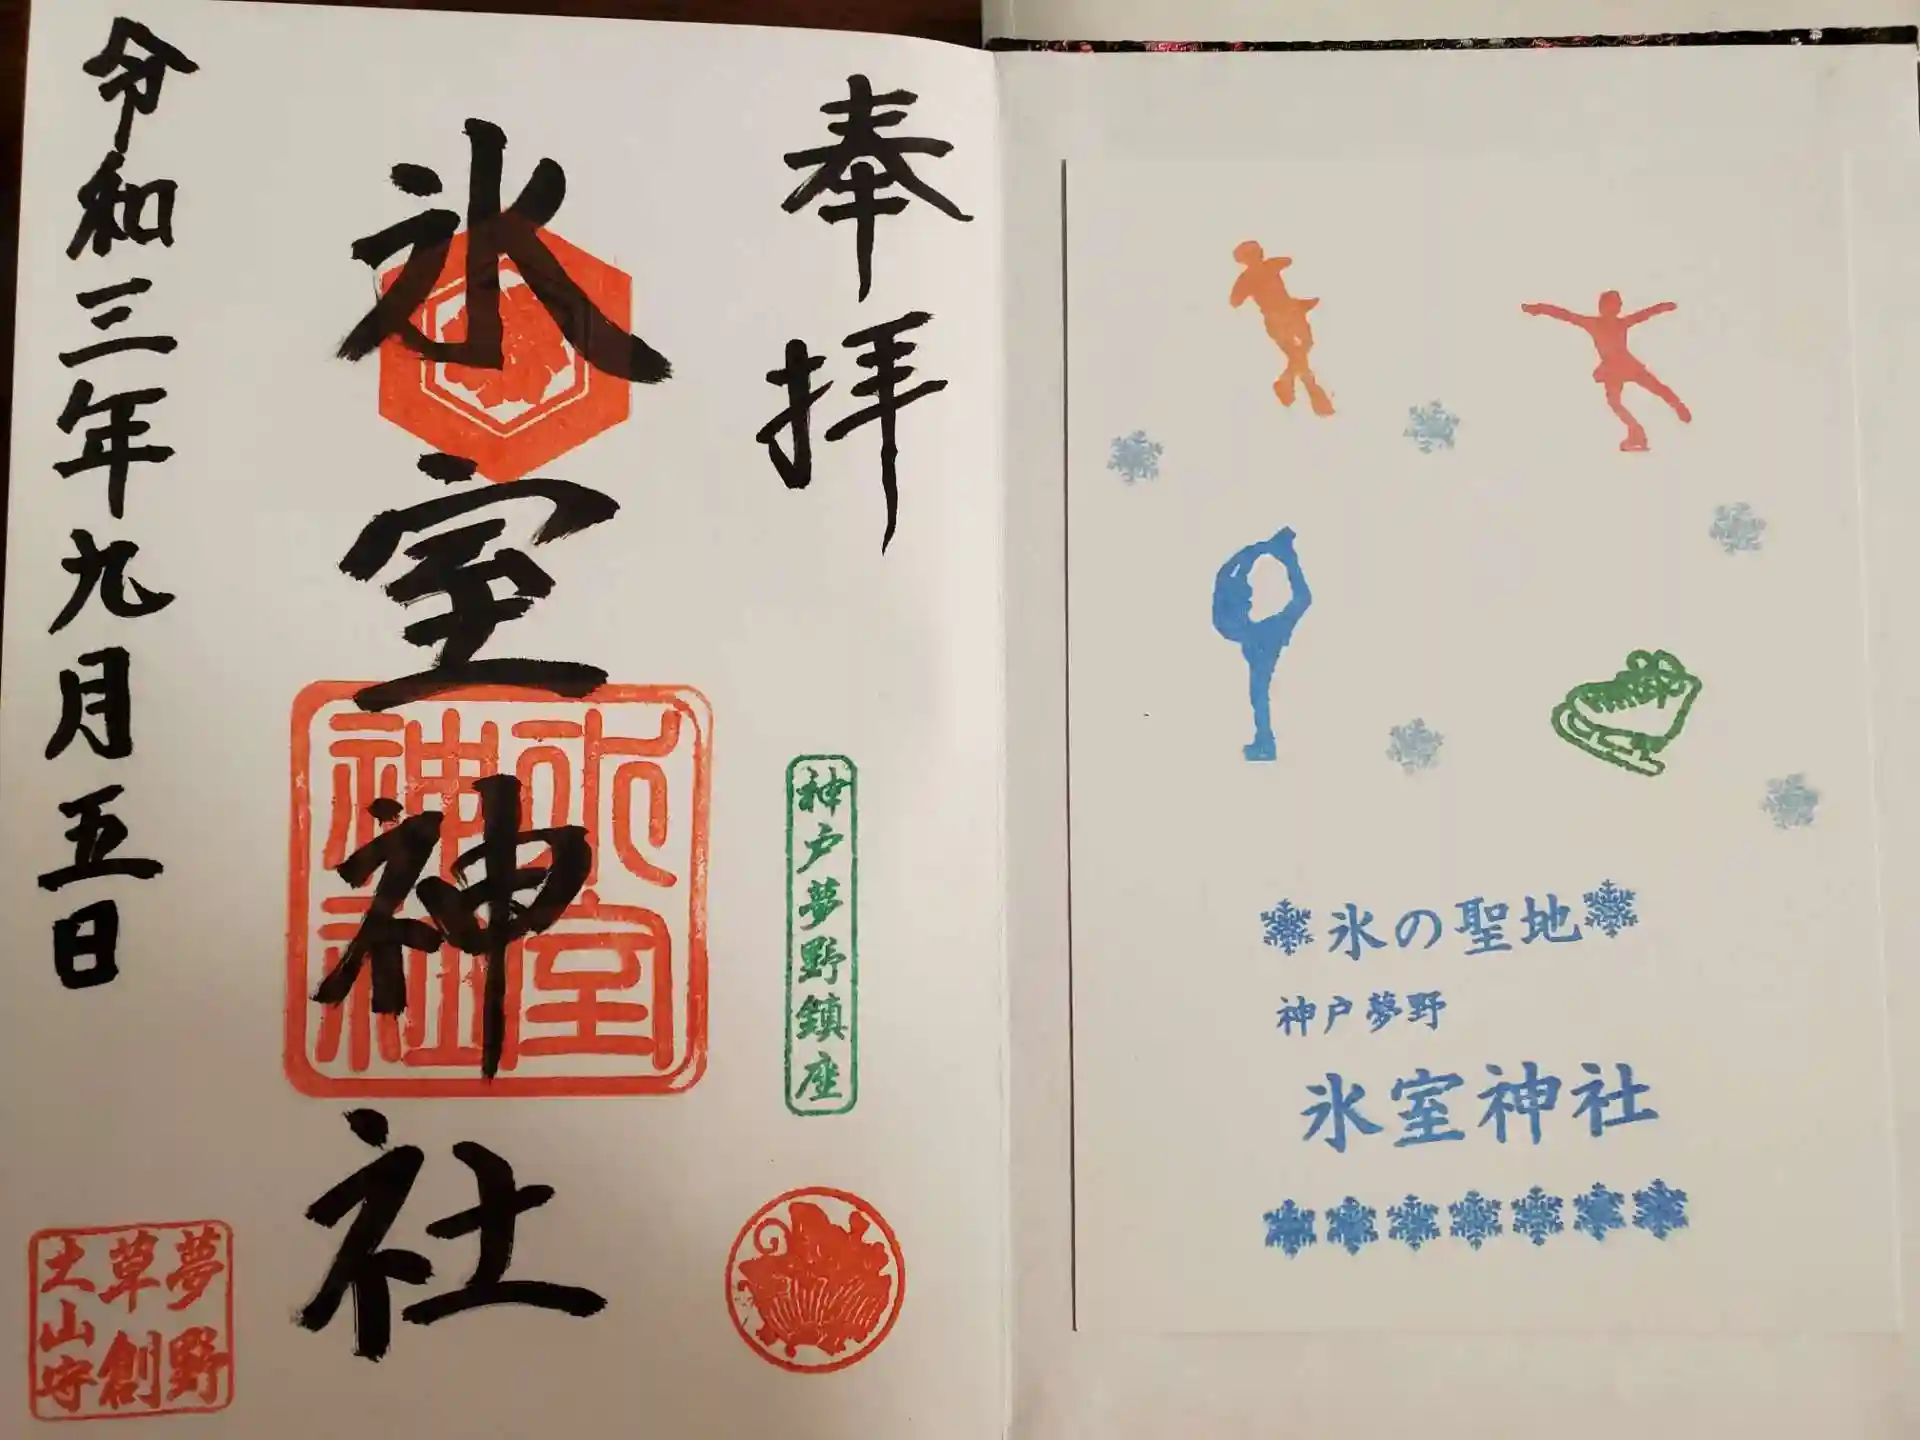 奉拝
神戸夢野鎮座
氷室神社
氷室
神社
令和三年九月五日
夢野
草創
土山守
氷の聖地
神戸夢野
氷室神社